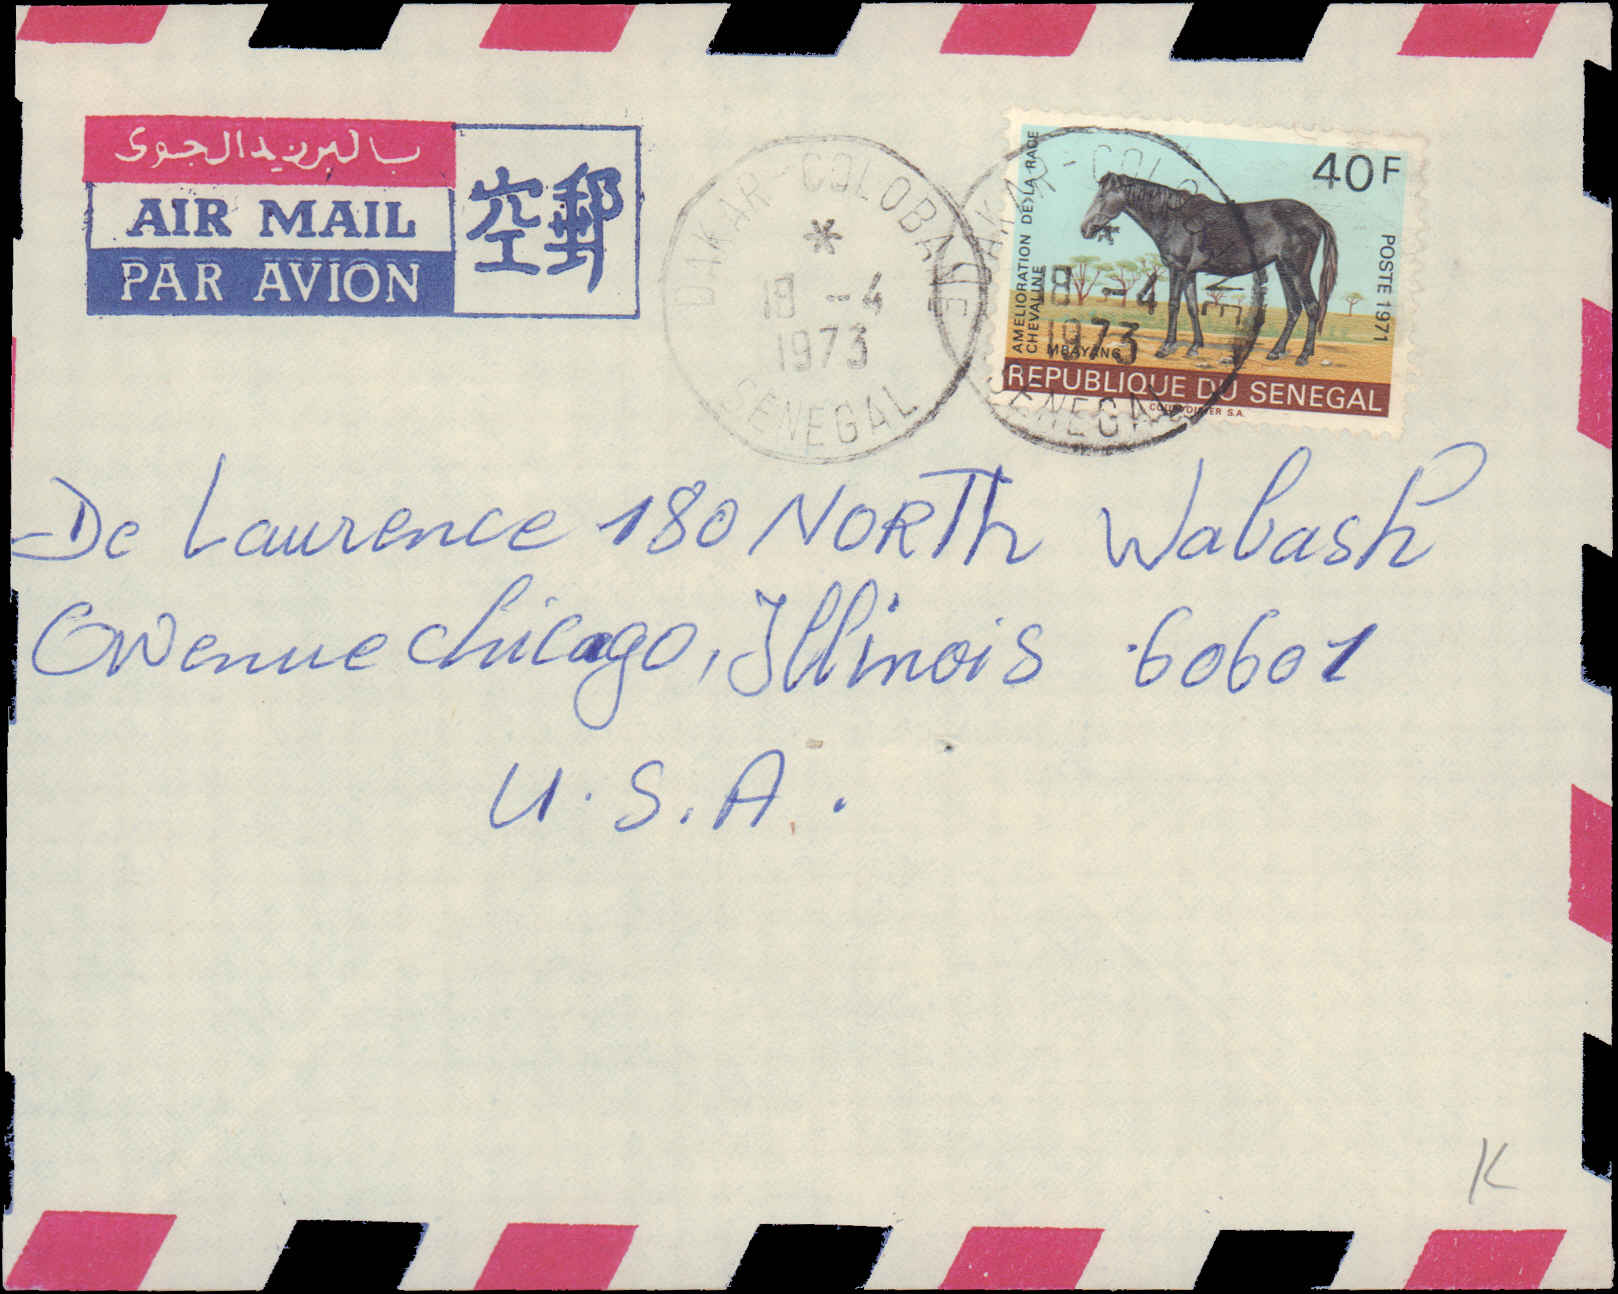 بالبريد الجوى
AIR MAIL
PAR AVION
空郵
DAKAR-COLOBANE
*
18 -4
1973
SENEGAL
DAKAR-COLOBANE
*
18 -4
1973
SENEGAL
40F
POSTE 1971
AMELIORATION DE LA RACE
CHEVALINE
MBAYANG
REPUBLIQUE DU SENEGAL
De Laurence 180 NORTh Wabash
Owenue chicago, Illinois 60601
U.S.A.
K